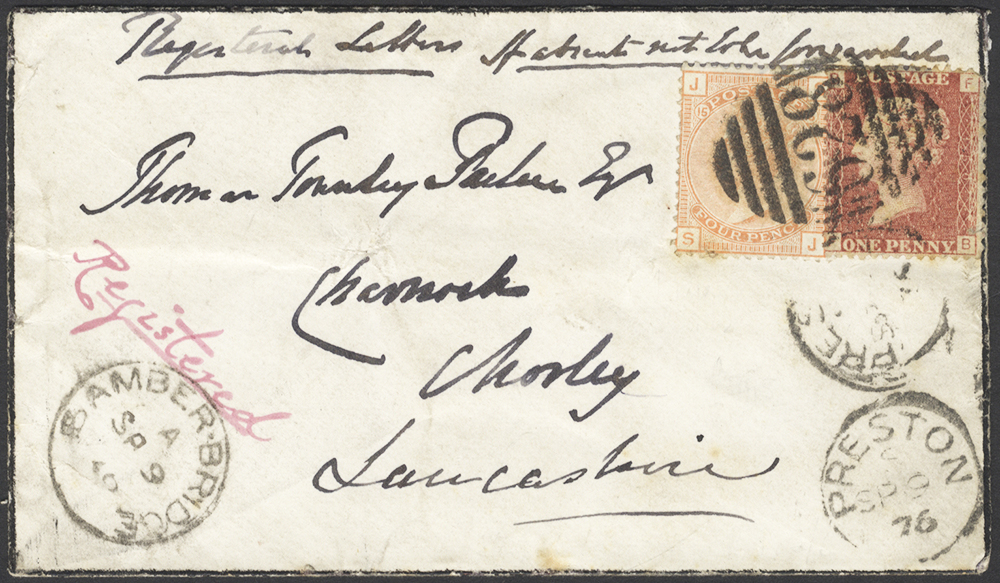 Registered Letters If absent not to be forwarded
J
POST
FOUR PENC
S J
POSTAGE F
ONE PENNY B
Thomas Townley Parker Esq
Charnock
Chorley
Lancashire
Registered
BAMBER-BRIDGE
A
SP 9
PRES
PRESTON
SP 9
76